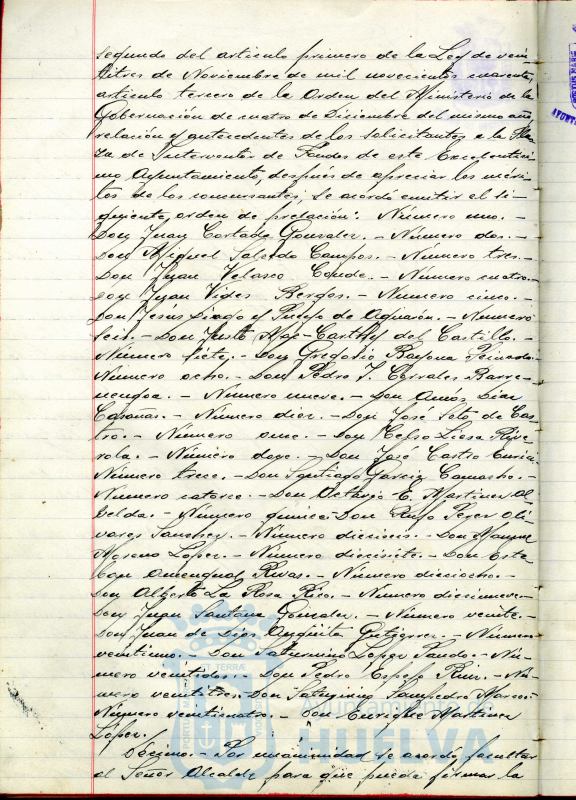 segundo del articulo primero de la Ley de vein-
titres de Noviembre de mil novecientos cuarenta,
articulo tercero de la Orden del Ministerio de la
Gobernación de cuatro de Diciembre del mismo año,
relación y antecedentes de los solicitantes a la Pla-
za de Interventor de Fondos de este Excelentísi-
mo Ayuntamiento, después de apreciar los méri-
tos de los concursantes, se acordó emitir el si-
guiente, orden de prelación: Número uno.-
Don Juan Cortada Gonzalez.- Número dos.-
Don Miguel Salcedo Campos.- Número tres.-
Don Juan Velasco Conde.- Número cuatro.-
Don Juan Vides Berges.- Número cinco.-
Don Jesús Liago y Pueyo de Aguarón.- Número
seis.- Don Justo Mac-Carthy del Castillo.-
Número siete.- Don Gregorio Bayona Peinado.-
Número ocho.- Don Pedro J. Corrales Barre-
nengoa.- Número nueve.- Don Amós Diaz
Casañas.- Número diez.- Don José Soto de Cas-
tro.- Número once.- Don Celso
rola.- Número doce.- Don José Castro
Número trece.- Don Santiago Garcia Camacho.-
Número catorce.- Don Arturo E. Martinez Al
belda.- Número quince.- Don Rufo Perez Oli-
vares Sanchez.- Número dieciseis.- Don Manuel
Moreno López.- Número diecisiete.- Don Este
ban Amengual Rivas.- Número dieciocho.-
Don Alberto La Rosa Rico.- Número diecinueve.-
Don Juan Santana Gonzalez.- Número veinte.-
Don Juan de Dios Anguita Gutiérrez.- Número
veintiuno.- Don Saturnino López Pando.- Nú-
mero veintidos.- Don Pedro Espejo Ruiz.- Nú-
mero veintitres.- Don Saturnino Sampedro Marcos.-
Número veinticuatro.- Don Enrique Martinez
López.-
Décimo.- Por unanimidad se acordó facultar
al Señor Alcalde para que pueda firmar la
Ayuntamiento de
HUELVA